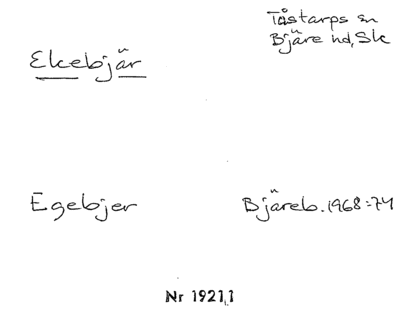 Tåstarps sn
Bjäre hd, Sk
Ekebjär
Egebjer
Bjäreb. 1968:74
Nr 1921,1